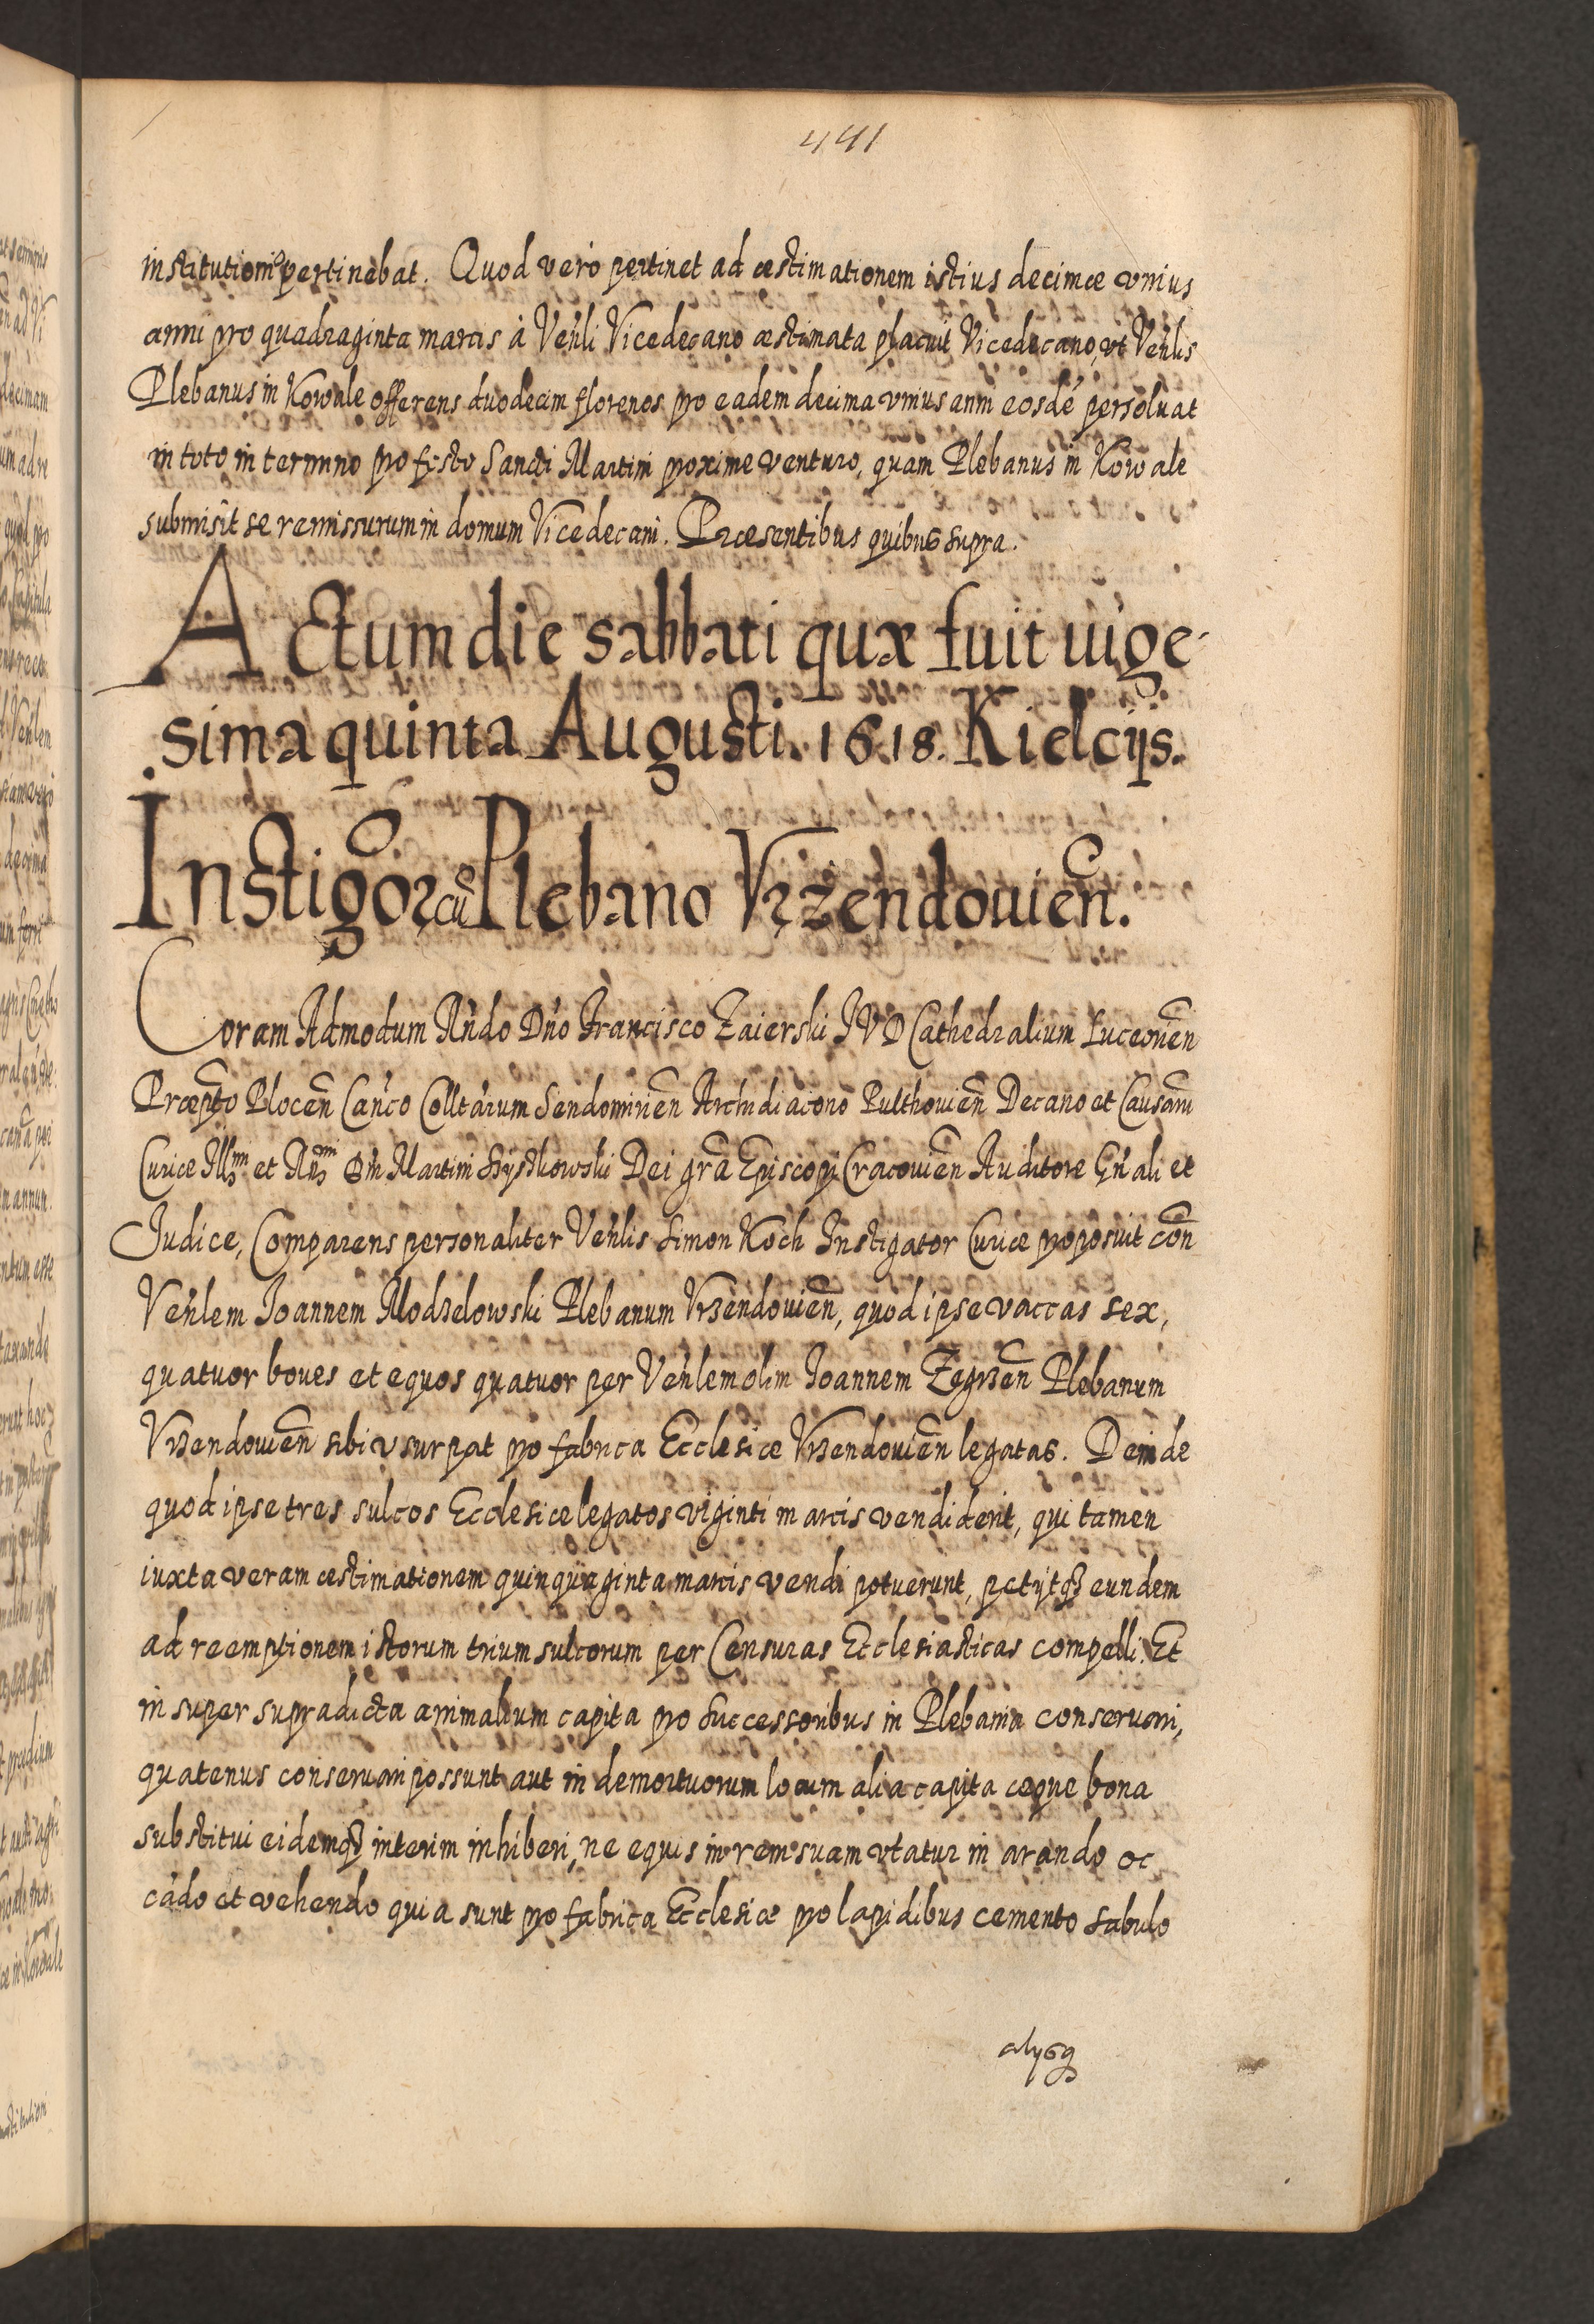 441
institutionis pertinebat. Quod vero pertinet ad æstimationem istius decimæ vnius
anni pro quadraginta marcis à Venli Vicedecano æstimata placuit Vicedecano, vt Venlis
Plebanus in Kowale offerens duodecim florenos pro eadem decima vnius anni eosdē persoluat
in toto in termino pro festo Sancti Martini proxime venturo, quam Plebanus in Kowale
submisit se remissurum in domum Vicedecani. Præsentibus quibus supra.
Actum die sabbati quæ fuit uige-
sima quinta Augusti. 1618. Kielcijs.
Instigor cū Plebano Vrzendouien̄.
Coram Admodum Rndo Dno Francisco Zaierski IVD Cathedralium Luceorien̄
Præpto Plocen̄ Canco Colltarum Sendomirien̄ Archidiacono Pulthouien̄ Decano et Causarū
Curiæ Illmi et Rndmi Dni Martini Szyszkowski Dei gra Episcopi Cracouien̄ Auditore Gnali et
Iudice, Comparens personaliter Venlis Simon Koch Instigator Curiæ proposuit con̄
Venlem Ioannem Modzelowski Plebanum Vrzendouien̄, quod ipse vaccas sex,
quatuor boues et equos quatuor per Venlem olim Ioannem Zegrzen̄ Plebanum
Vrzendouien̄ sibi vsurpat pro fabrica Ecclesiæ Vrzendouien̄ legatas. Deinde
quod ipse tres sulcos Ecclesiæ legatos viginti marcis vendiderit, qui tamen
iuxta veram æstimationem quinquaginta marcis vendi potuerunt, petijtq; eundem
ad reemptionem istorum trium sulcorum per Censuras Ecclesiasticas compelli. Et
in super supradicta animalium capita pro Successoribus in Plebania conseruari,
quatenus conseruari possunt aut in demortuorum locum alia capita æque bona
substitui eidemq; interim inhiberi, ne equis in rem suam vtatur in arando oc
cādo et vehendo quia sunt pro fabrica Ecclesiæ pro lapidibus cemento sabulo
alysq;